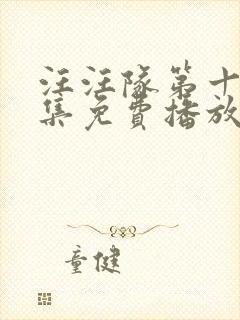 汪汪隊第十
集免費播放
童健